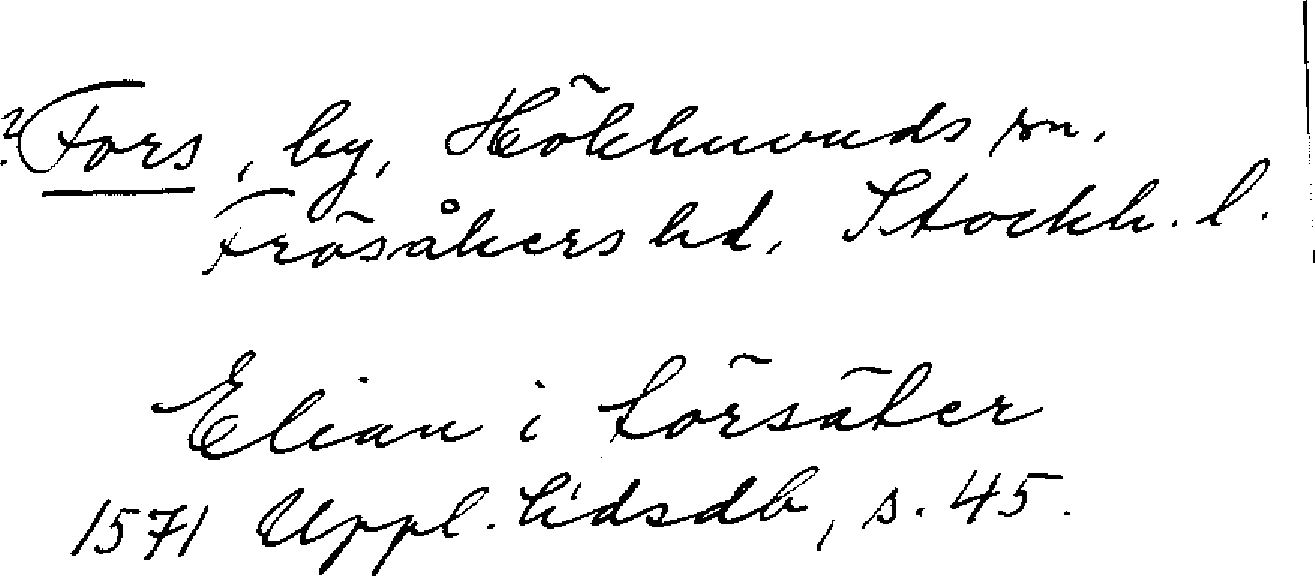 ? Fors, by, Hökhuvuds sn,
Frösåkers hd, Stockh. l.
Elian i törsäter
1571 Uppl. hdsdb, s. 45.